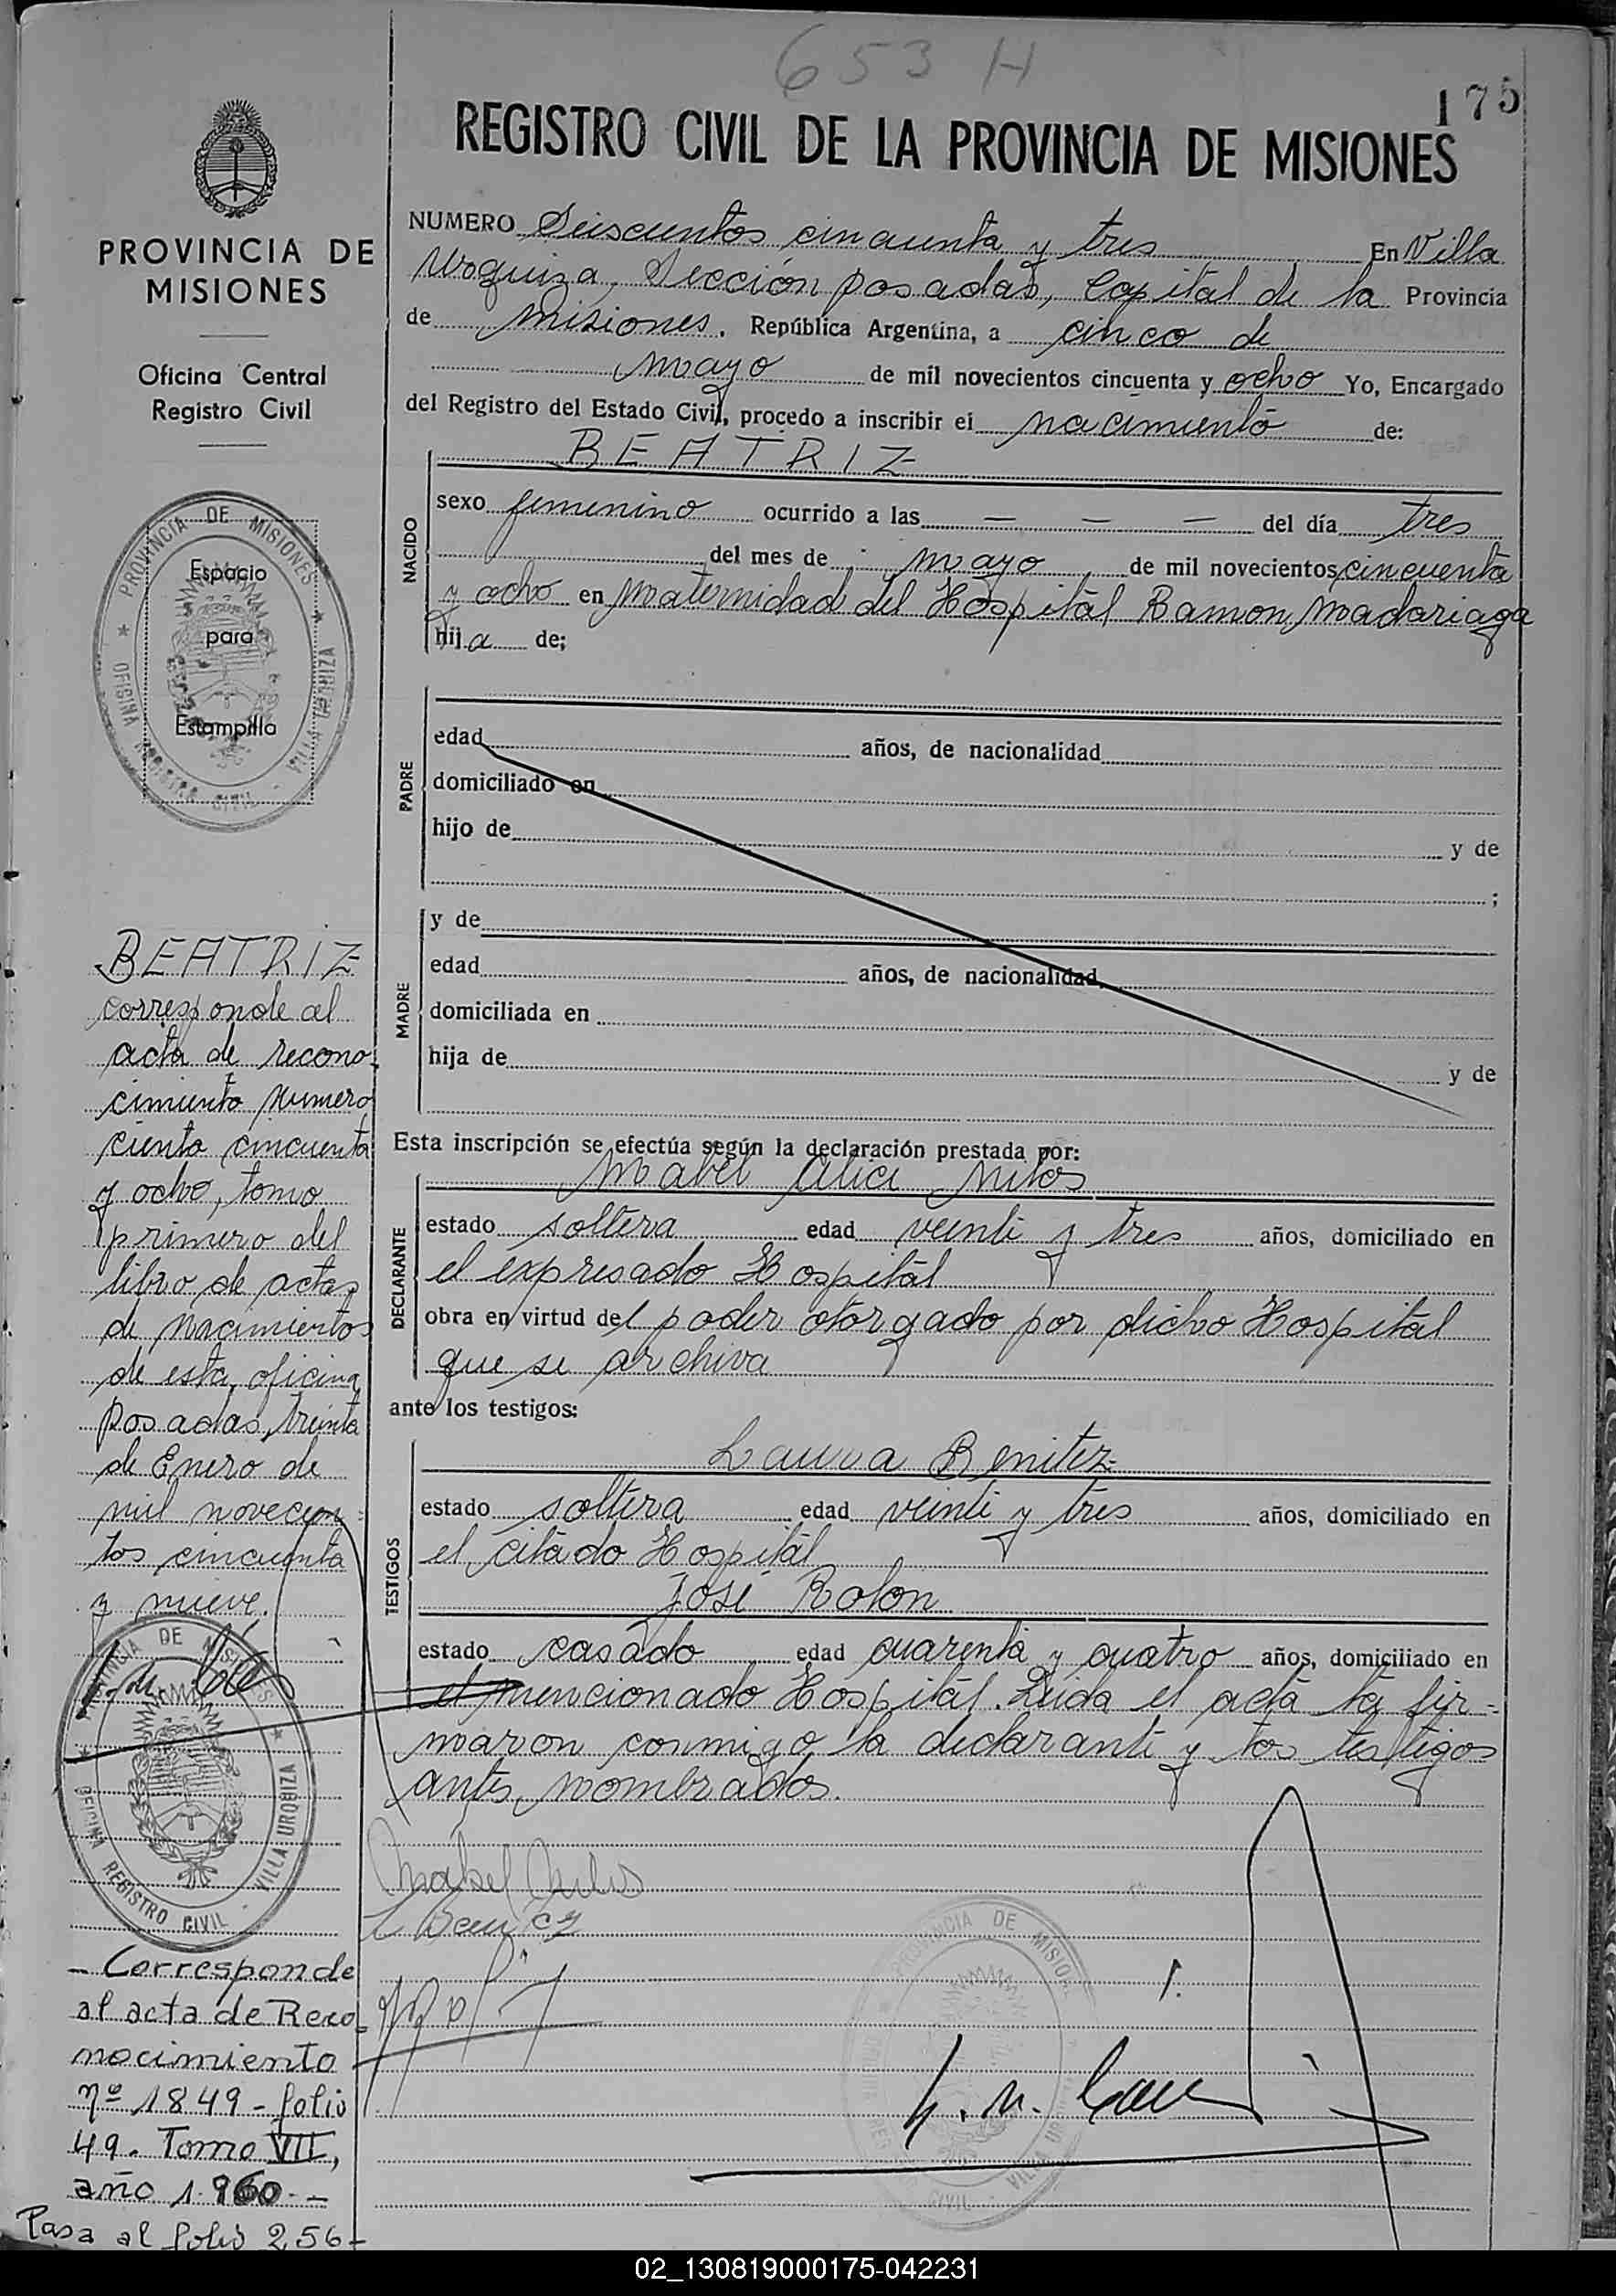 653 H
175
REGISTRO CIVIL DE LA PROVINCIA DE MISIONES
PROVINCIA DE
MISIONES
Oficina Central
Registro Civil
PROVINCIA DE MISIONES
OFICINA REGISTRO CIVIL - VILLA URQUIZA
Espacio
para
Estampilla
BEATRIZ
corresponde al
acta de recono-
cimiento numero
ciento cincuenta
y ocho, tomo
primero del
libro de actas
de nacimientos
de esta oficina
Posadas, treinta
de Enero de
mil novecien=
tos cincuenta
y nueve.
PROVINCIA DE MISIONES
OFICINA REGISTRO CIVIL - VILLA URQUIZA
- Corresponde
al acta de Reco-
nocimiento
nº 1849 - folio
49 - Tomo VII,
año 1.960.-
Pasa al folio 256-
NUMERO Seiscientos cincuenta y tres En Villa
Urquiza, Sección posadas, Capital de la Provincia
de misiones. República Argentina, a cinco de
mayo de mil novecientos cincuenta y ocho Yo, Encargado
del Registro del Estado Civil, procedo a inscribir el nacimiento de:
NACIDO
BEATRIZ
sexo femenino ocurrido a las — — — del día tres
del mes de mayo de mil novecientos cincuenta
y ocho en Maternidad del Hospital Ramon Madariaga
hija de;
PADRE
edad años, de nacionalidad
domiciliado en
hijo de y de
;
MADRE
y de
edad años, de nacionalidad
domiciliada en
hija de y de
Esta inscripción se efectúa según la declaración prestada por:
DECLARANTE
Mabel
estado soltera edad veinti y tres años, domiciliado en
el expresado Hospital
obra en virtud del poder otorgado por dicho Hospital
que se archiva
ante los testigos:
TESTIGOS
Laura Benitez
estado soltera edad veinti y tres años, domiciliado en
el citado Hospital
José Rolon
estado casado edad cuarenta y cuatro años, domiciliado en
el mencionado Hospital. Leida el acta la fir=
maron conmigo la declarante y los testigos
antes nombrados.
Mabel
L Benitez
PROVINCIA DE MISIONES
VILLA URQUIZA
CIVIL
02_130819000175-042231